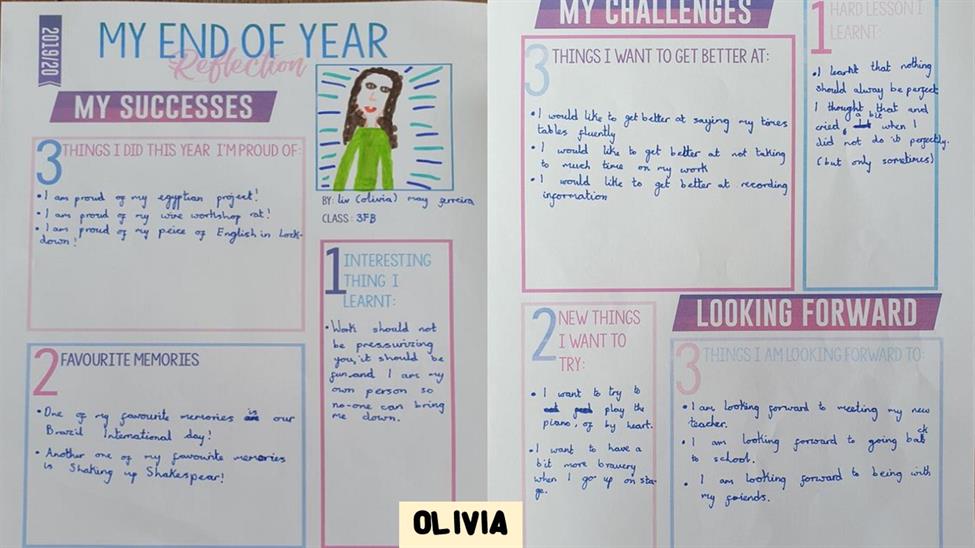 2019/20
MY END OF YEAR
Reflection
MY SUCCESSES
3 THINGS I DID THIS YEAR I'M PROUD OF:
• I am proud of my egyptian project!
• I am proud of my wire workshop rat!
• I am proud of my peice of English in Lock-
down!
BY: liv (olivia) may
CLASS: 3FB
1 INTERESTING
THING I
LEARNT:
• Work should not
be pressurizing
you, it should be
fun and I am my
own person so
no-one can bring
me down.
2 FAVOURITE MEMORIES
• One of my favourite memories is our
Brazil International day!
• Another one of my favourite memories
is Shaking up Shakespear!
MY CHALLENGES
3 THINGS I WANT TO GET BETTER AT:
• I would like to get better at saying my times
tables fluently
• I would like to get better at not taking
to much time on my work
• I would like to get better at recording
information
1 HARD LESSON I
LEARNT:
• I learnt that nothing
should alway be perfect
I thought that and
cried, a bit when I
did not do it perfectly.
(but only sometimes)
2 NEW THINGS
I WANT TO
TRY:
• I want to try to
play the
piano, of by heart.
• I want to have a
bit more bravery
when I go up on sta-
ge.
LOOKING FORWARD
3 THINGS I AM LOOKING FORWARD TO:
• I am looking forward to meeting my new
teacher.
• I am looking forward to going back
to school.
• I am looking forward to being with
my friends.
OLIVIA